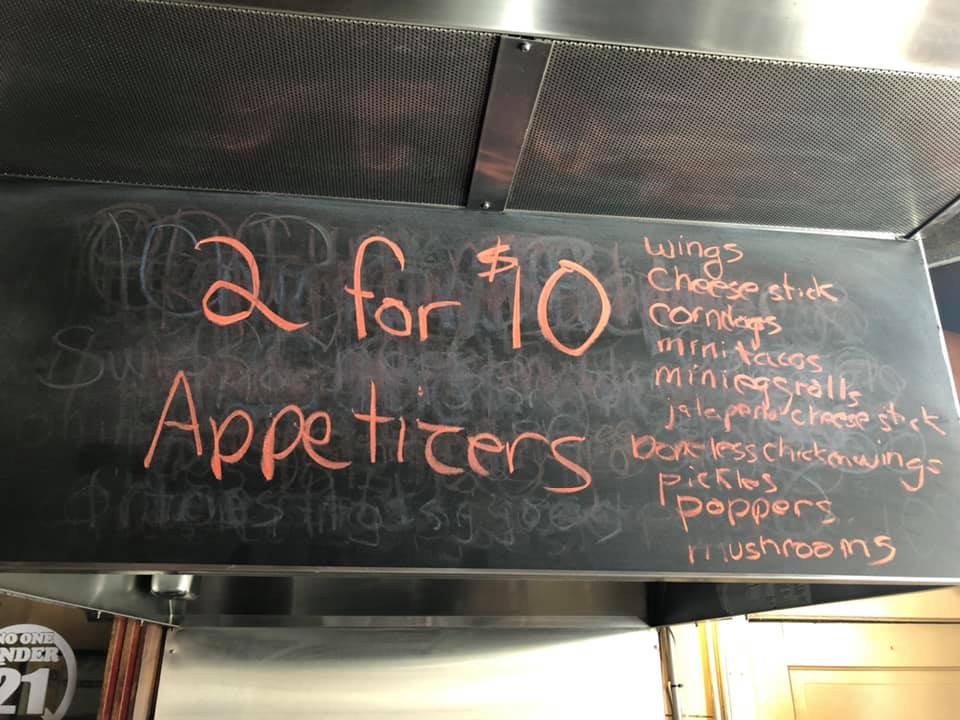 2 for $10
Appetizers
wings
Cheese stick
corndogs
mini tacos
mini eggrolls
jalapeno cheese stick
boneless chicken wings
pickles
poppers
mushrooms
NO ONE
UNDER
21